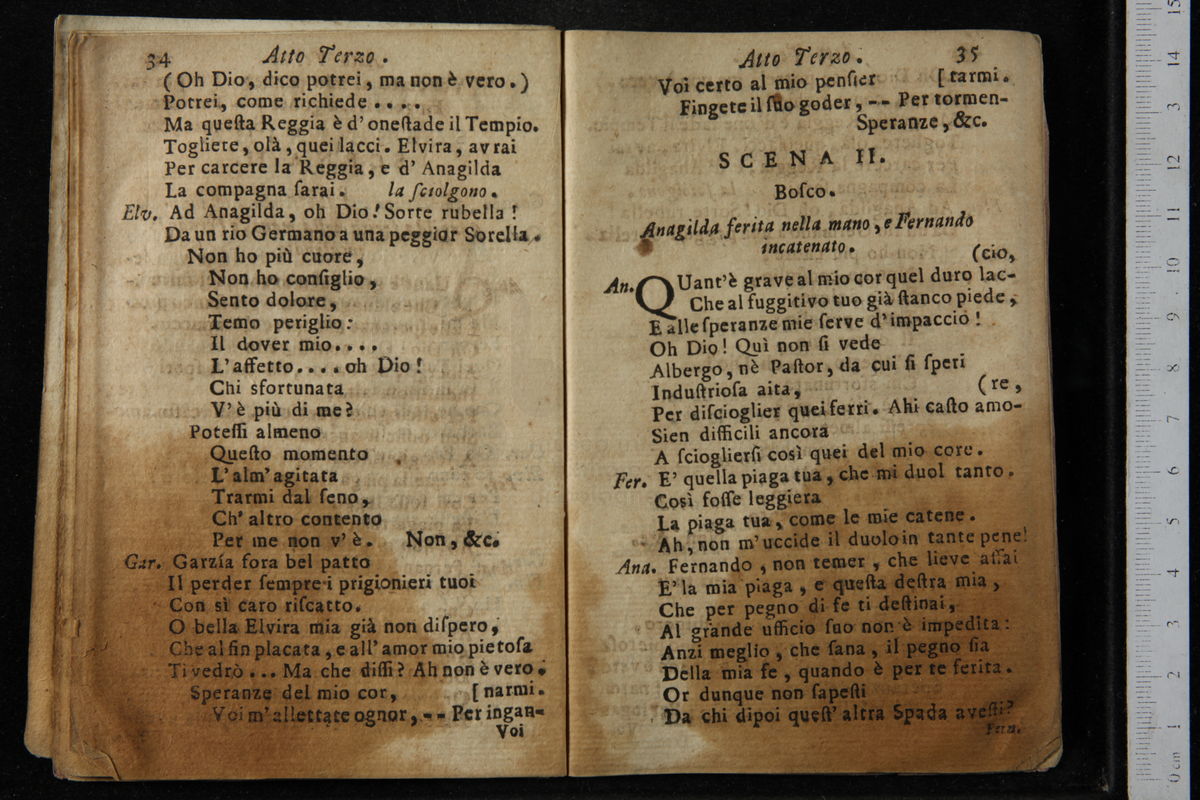 34 Atto Terzo.
(Oh Dio, dico potrei, ma non è vero.)
Potrei, come richiede . . . .
Ma queſta Reggia è d' oneſtade il Tempio.
Togliete, olà, quei lacci. Elvira, avrai
Per carcere la Reggia, e d' Anagilda
La compagna ſarai. la ſciolgono.
Elv. Ad Anagilda, oh Dio! Sorte rubella!
Da un rio Germano a una peggior Sorella.
Non ho più cuore,
Non ho conſiglio,
Sento dolore,
Temo periglio:
Il dover mio. . . .
L' affetto. . . . oh Dio!
Chi sfortunata
V' è più di me?
Poteſſi almeno
Queſto momento
L' alm' agitata
Trarmi dal ſeno,
Ch' altro contento
Per me non v' è. Non, &c.
Gar. Garzía fora bel patto
Il perder ſempre i prigionieri tuoi
Con sì caro riſcatto.
O bella Elvira mia già non diſpero,
Che al fin placata, e all' amor mio pietoſa
Ti vedrò . . . Ma che diſſi? Ah non è vero.
Speranze del mio cor, [ narmi.
Voi m' allettate ognor, -- Per ingan-
Voi
Atto Terzo. 35
Voi certo al mio penſier [ tarmi.
Fingete il ſuo goder, -- Per tormen-
Speranze, &c.
SCENA II.
Boſco.
Anagilda ferita nella mano, e Fernando
incatenato. (cio,
An. QUant' è grave al mio cor quel duro lac-
Che al fuggitivo tuo già ſtanco piede,
E alle ſperanze mie ſerve d' impaccio!
Oh Dio! Quì non ſi vede
Albergo, nè Paſtor, da cui ſi ſperi
Induſtrioſa aita, (re,
Per diſcioglier quei ferri. Ahi caſto amo-
Sien difficili ancora
A ſcioglierſi così quei del mio core.
Fer. E' quella piaga tua, che mi duol tanto.
Così foſſe leggiera
La piaga tua, come le mie catene.
Ah, non m' uccide il duolo in tante pene!
Ana. Fernando, non temer, che lieve aſſai
E' la mia piaga, e queſta deſtra mia,
Che per pegno di fe ti deſtinai,
Al grande ufficio ſuo non è impedita:
Anzi meglio, che ſana, il pegno ſia
Della mia fe, quando è per te ferita.
Or dunque non ſapeſti
Da chi dipoi queſt' altra Spada aveſti?